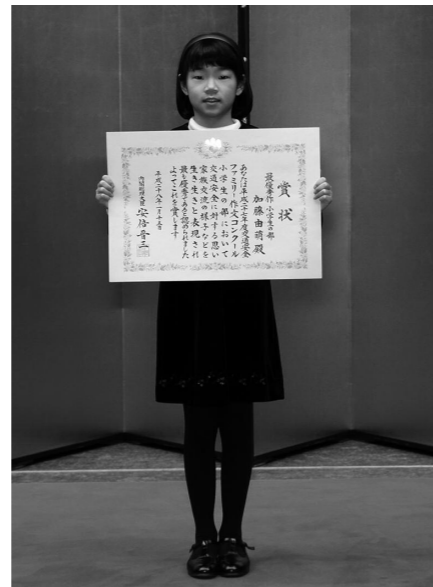 賞状
最優秀作 小学生の部
加藤由萌殿
あなたは平成二十七年度交通安全
ファミリー作文コンクール
小学生の部において
交通安全に対する思い
家族交流の様子などを
生き生きと表現され
最も優秀であると認められました
よってこれを賞します
平成二十八年一月十五日
内閣総理大臣 安倍晋三